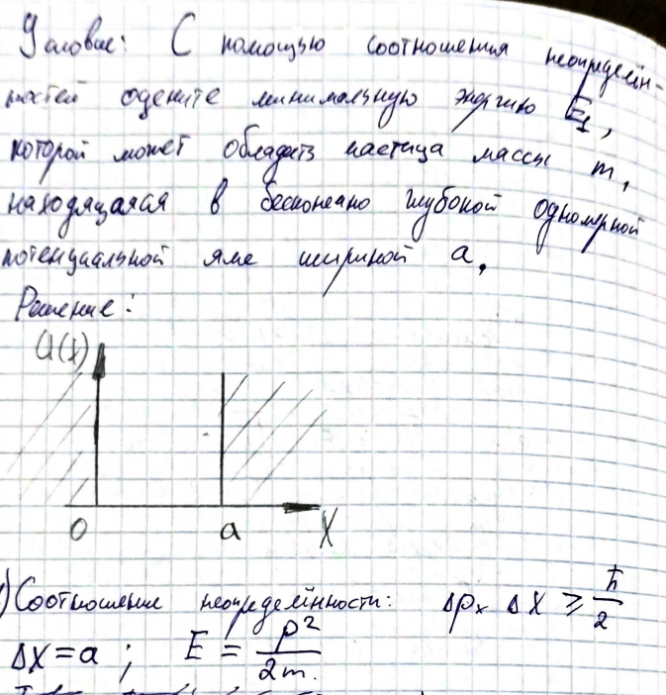 Условие: С помощью соотношения неопределён-
ностей оцените минимальную энергию E₁,
которой может обладать частица массы m,
находящаяся в бесконечно глубокой одномерной
потенциальной яме шириной a.
Решение:
U(x)
0 a X
) Соотношение неопределённости: Δpₓ Δx ⩾ ħ/2
ΔX = a ; E = p²/2m.